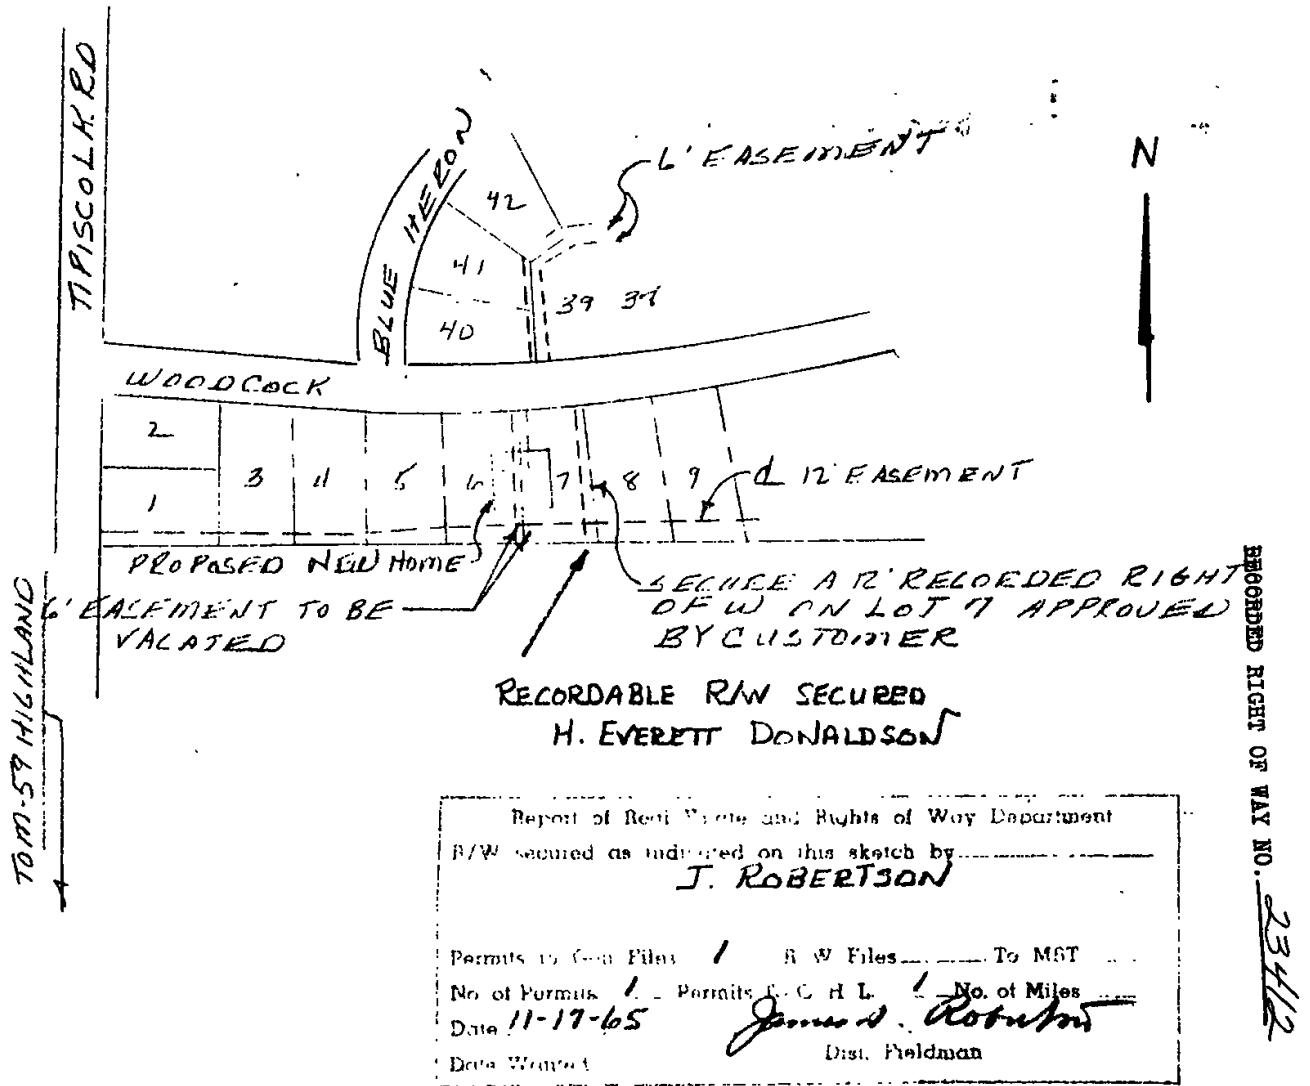 TIPISCO LK. RD
BLUE HERON
6' EASEMENT
N
42
41
40
39
37
WOODCOCK
2
1
3
4
5
6
7
8
9
12' EASEMENT
PROPOSED NEW HOME
6' EASEMENT TO BE
VACATED
SECURE A 12' RECORDED RIGHT
OF W ON LOT 7 APPROVED
BY CUSTOMER
RECORDABLE R/W SECURED
H. EVERETT DONALDSON
TOM-59 HIGHLAND
RECORDED RIGHT OF WAY NO. 23412
Report of Real Estate and Rights of Way Department
R/W secured as indicated on this sketch by
J. ROBERTSON
Permits to Gen Files 1 R W Files To MST
No of Permits 1 Permits C H L 1 No. of Miles
Date 11-17-65
Dist. Fieldman
Date Wanted